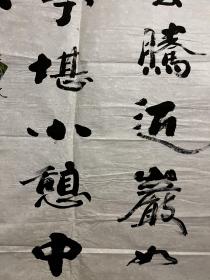 騰近巖如
堪小憩中